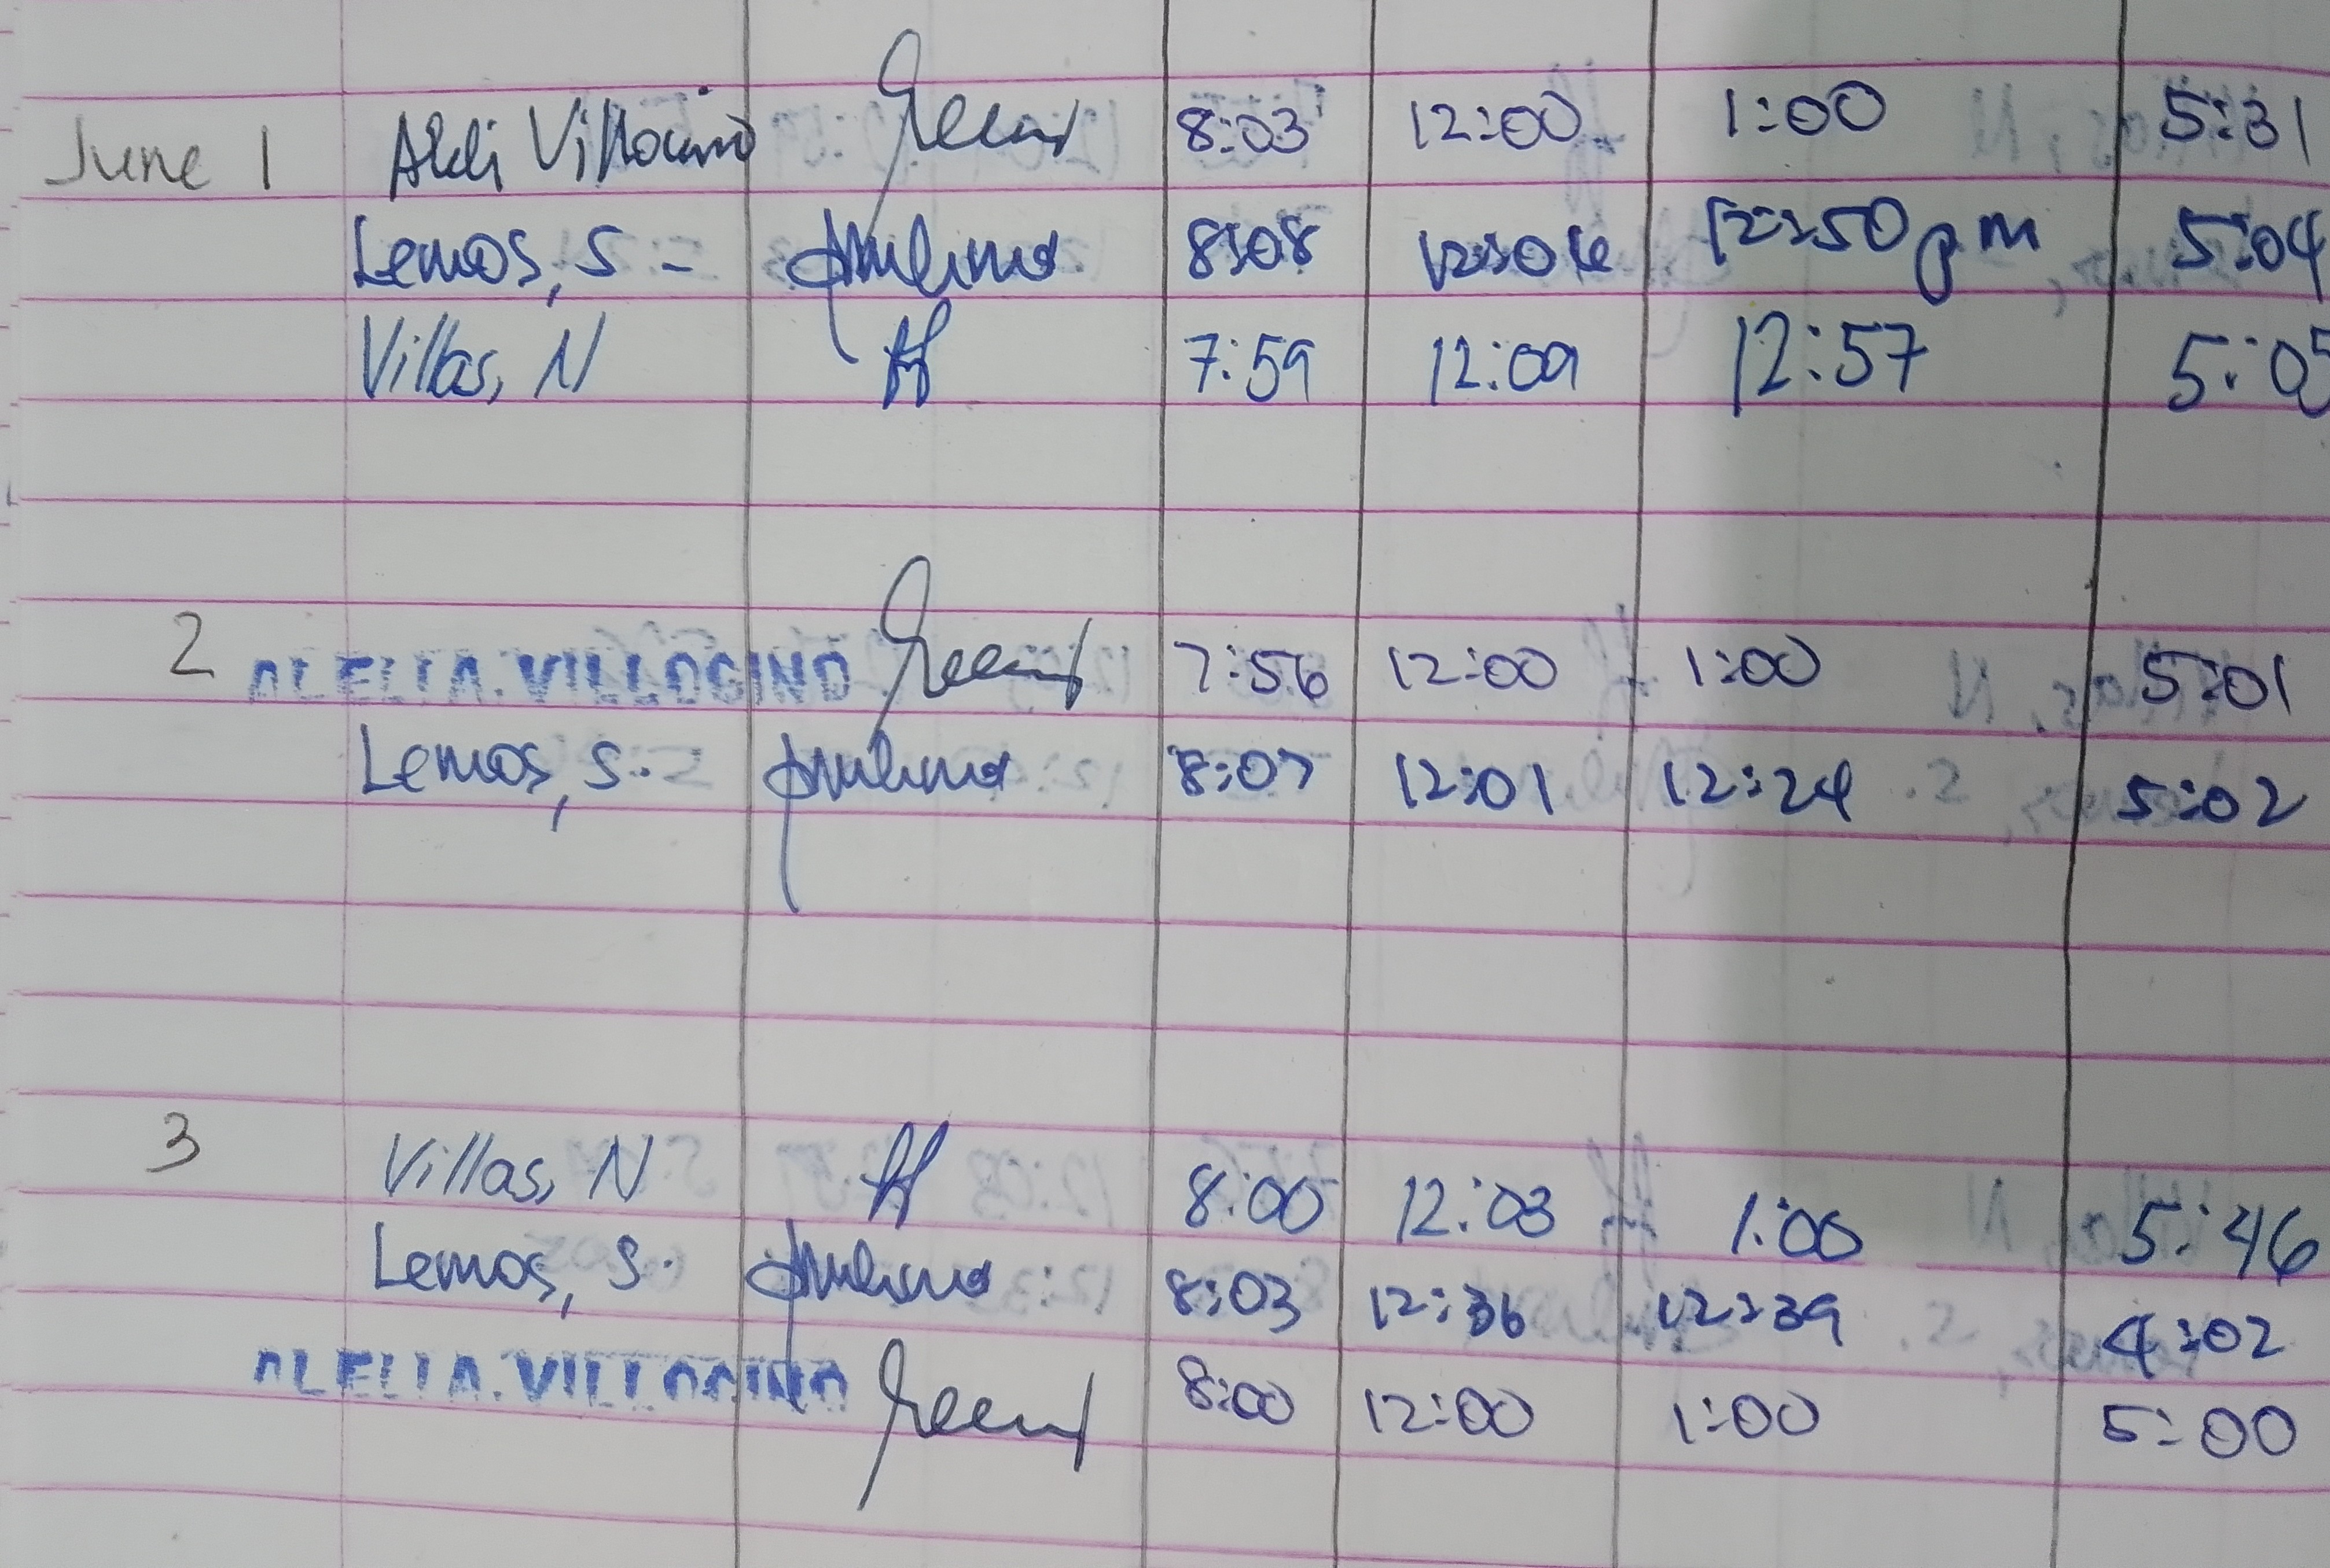 June 1 Aldi Villocino 8:03 12:00 1:00 5:31
Lemos, S - 8:08 12:06 12:50 pm 5:04
Villas, N 7:59 12:09 12:57 5:05
2 ALELIA.VILLOCINO 7:56 12:00 1:00 5:01
Lemos, S. 8:07 12:01 12:24 5:02
3 Villas, N 8:00 12:03 1:00 5:46
Lemos, S. 8:03 12:36 12:39 4:02
ALELIA.VILLOCINO 8:00 12:00 1:00 5:00